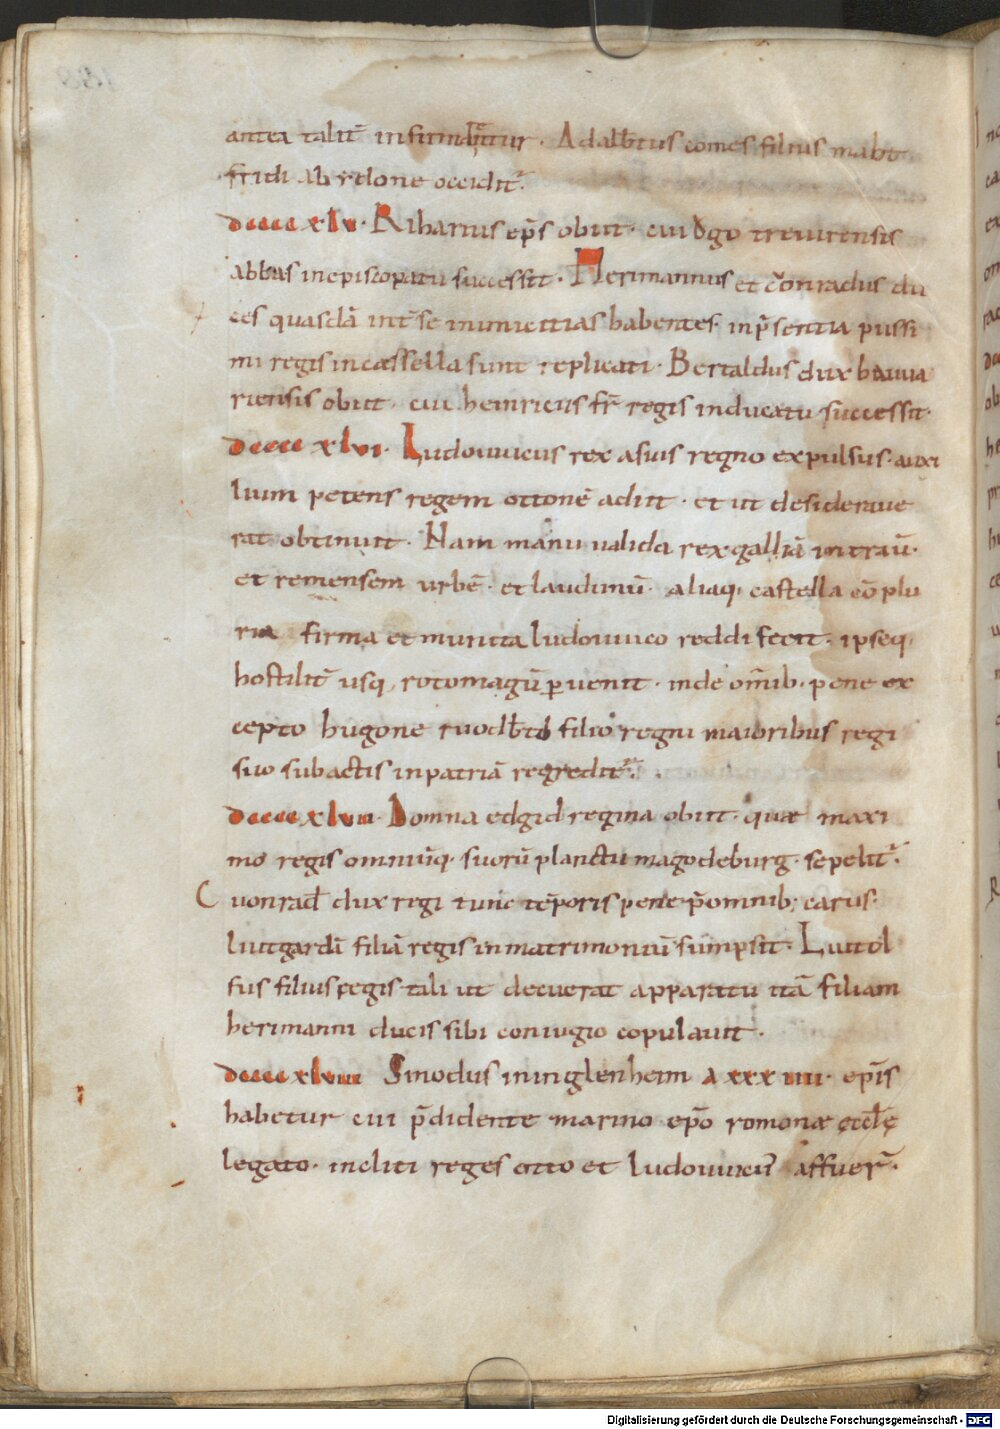 antea talit̄ infirmabātur. Adalb̄tus comes filius mabt
fridi ab rdone occidit̄.
dccccxlv. Riharius ep̄s obiit. cui Ogo treuirensis
abbas in episcopatu successit. Herimannus et cōnradus du
ces quasdā int̄ se inimicitias habentes. in p̄sentia piissi
mi regis in cassella sunt replicati. Bertaldus dux bauua
riensis obiit. cui heinricus fr̄ regis in ducatu successit.
dccccxlvi. Ludouuicus rex a suis regno expulsus. auxi
lium petens regem ottonē adiit. et ut desideraue
rat obtinuit. Nam manu ualida rex galliā intrau̅.
et remensem urbē. et laudunū. aliaq; castella cō plu
ria firma et munita ludouuico reddi fecit. ipseq;
hostilit̄ usq; rotomagū ꝑuenit. inde om̄ib. pene ex
cepto hugone ruodb̄to filio regni maioribus regi
suo subactis in patriā regredit̄.
dccccxlvii. Domna edgid regina obiit. quae maxi
mo regis omniūq; suorū planctu magodeburg. sepelit̄.
Cuonrad̄ dux regi tunc tēporis pene p̄ omnib; carus.
liutgardā filiā regis in matrimoniū sumpsit. Liutol
fus filius regis tali ut decuerat apparatu itā filiam
herimanni ducis sibi coniugio copulauit.
dccccxlviii Sinodus in inglenheim a xxxiiii. ep̄is
habetur cui p̄sidente marino ep̄o romonae ęccl̄ę
legato. incliti reges otto et ludouuicus affuer̄.
Digitalisierung gefördert durch die Deutsche Forschungsgemeinschaft - DFG